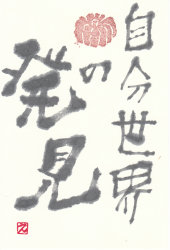 自分世界
の
発見